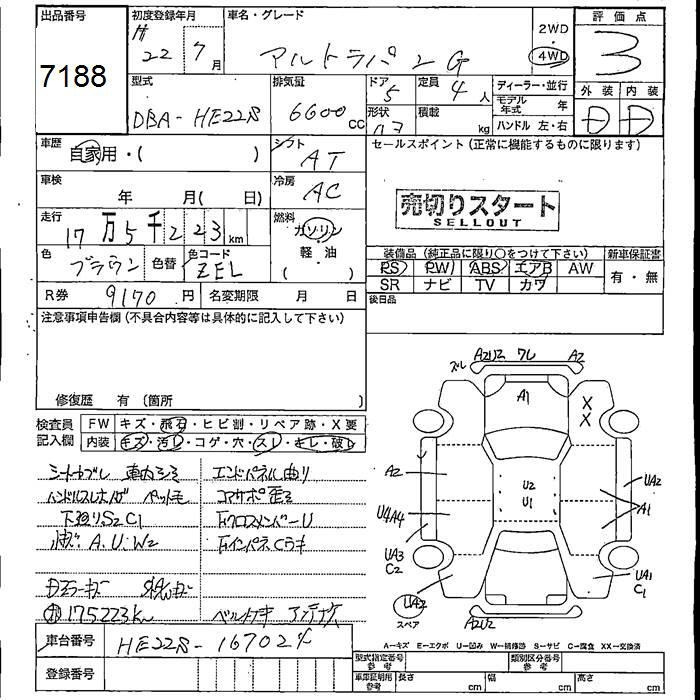 出品番号 初度登録年月 車名・グレード 2WD 評価点
7188 H 22年 7月 アルトラパン G 4WD 3
型式 排気量 ドア 定員 ディーラー・並行 外装 内装
DBA-HE22S 6600cc 5 4人 モデル年式 年 D D
形状 積載 kg ハンドル 左・右
車歴 自家用・( ) シフト AT セールスポイント(正常に機能するものに限ります)
車検 年 月( 日) 冷房 AC
売切りスタート
SELLOUT
走行 17万5千223km 燃料 ガソリン
軽油
色 ブラウン 色替 色コード ZEL
装備品(純正品に限り○をつけて下さい) 新車保証書
PS PW ABS エアB AW 有・無
SR ナビ TV カワ
R券 9170円 名変期限 月 日 後日品
注意事項申告欄(不具合内容等は具体的に記入して下さい)
修復歴 有(箇所 )
検査員 FW キズ・飛石・ヒビ割・リペア跡・X要
記入欄 内装 キズ・汚レ・コゲ・穴・スレ・キレ・破レ
エンドパネル曲り
コアサポ歪る
下廻りS2C1 FクロスメンバーU
A.U.W2
175223km
ズレ A2U2 ワレ A2
A1 X X
A2 UA2
U2
U1 A1
U4A4
UA3
C2 UA1
C1
スペア A2U2
A-キズ E-エクボ U-凹み W-補修跡 S-サビ C-腐食 XX-交換済
車台番号 HE22S-167024
登録番号
型式指定番号 参考 類別区分番号 参考
車庫証明用 参考 長さ cm 幅 cm 高さ cm